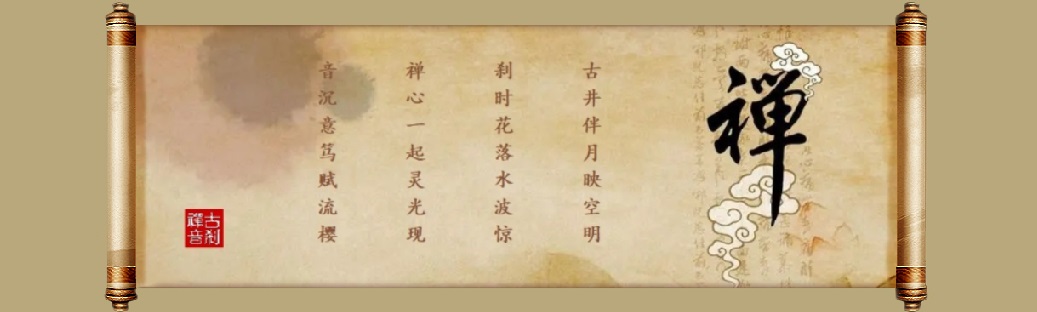 禅
古井伴月映空明
刹时花落水波惊
禅心一起灵光现
音沉意笃赋流樱
古刹
禪音